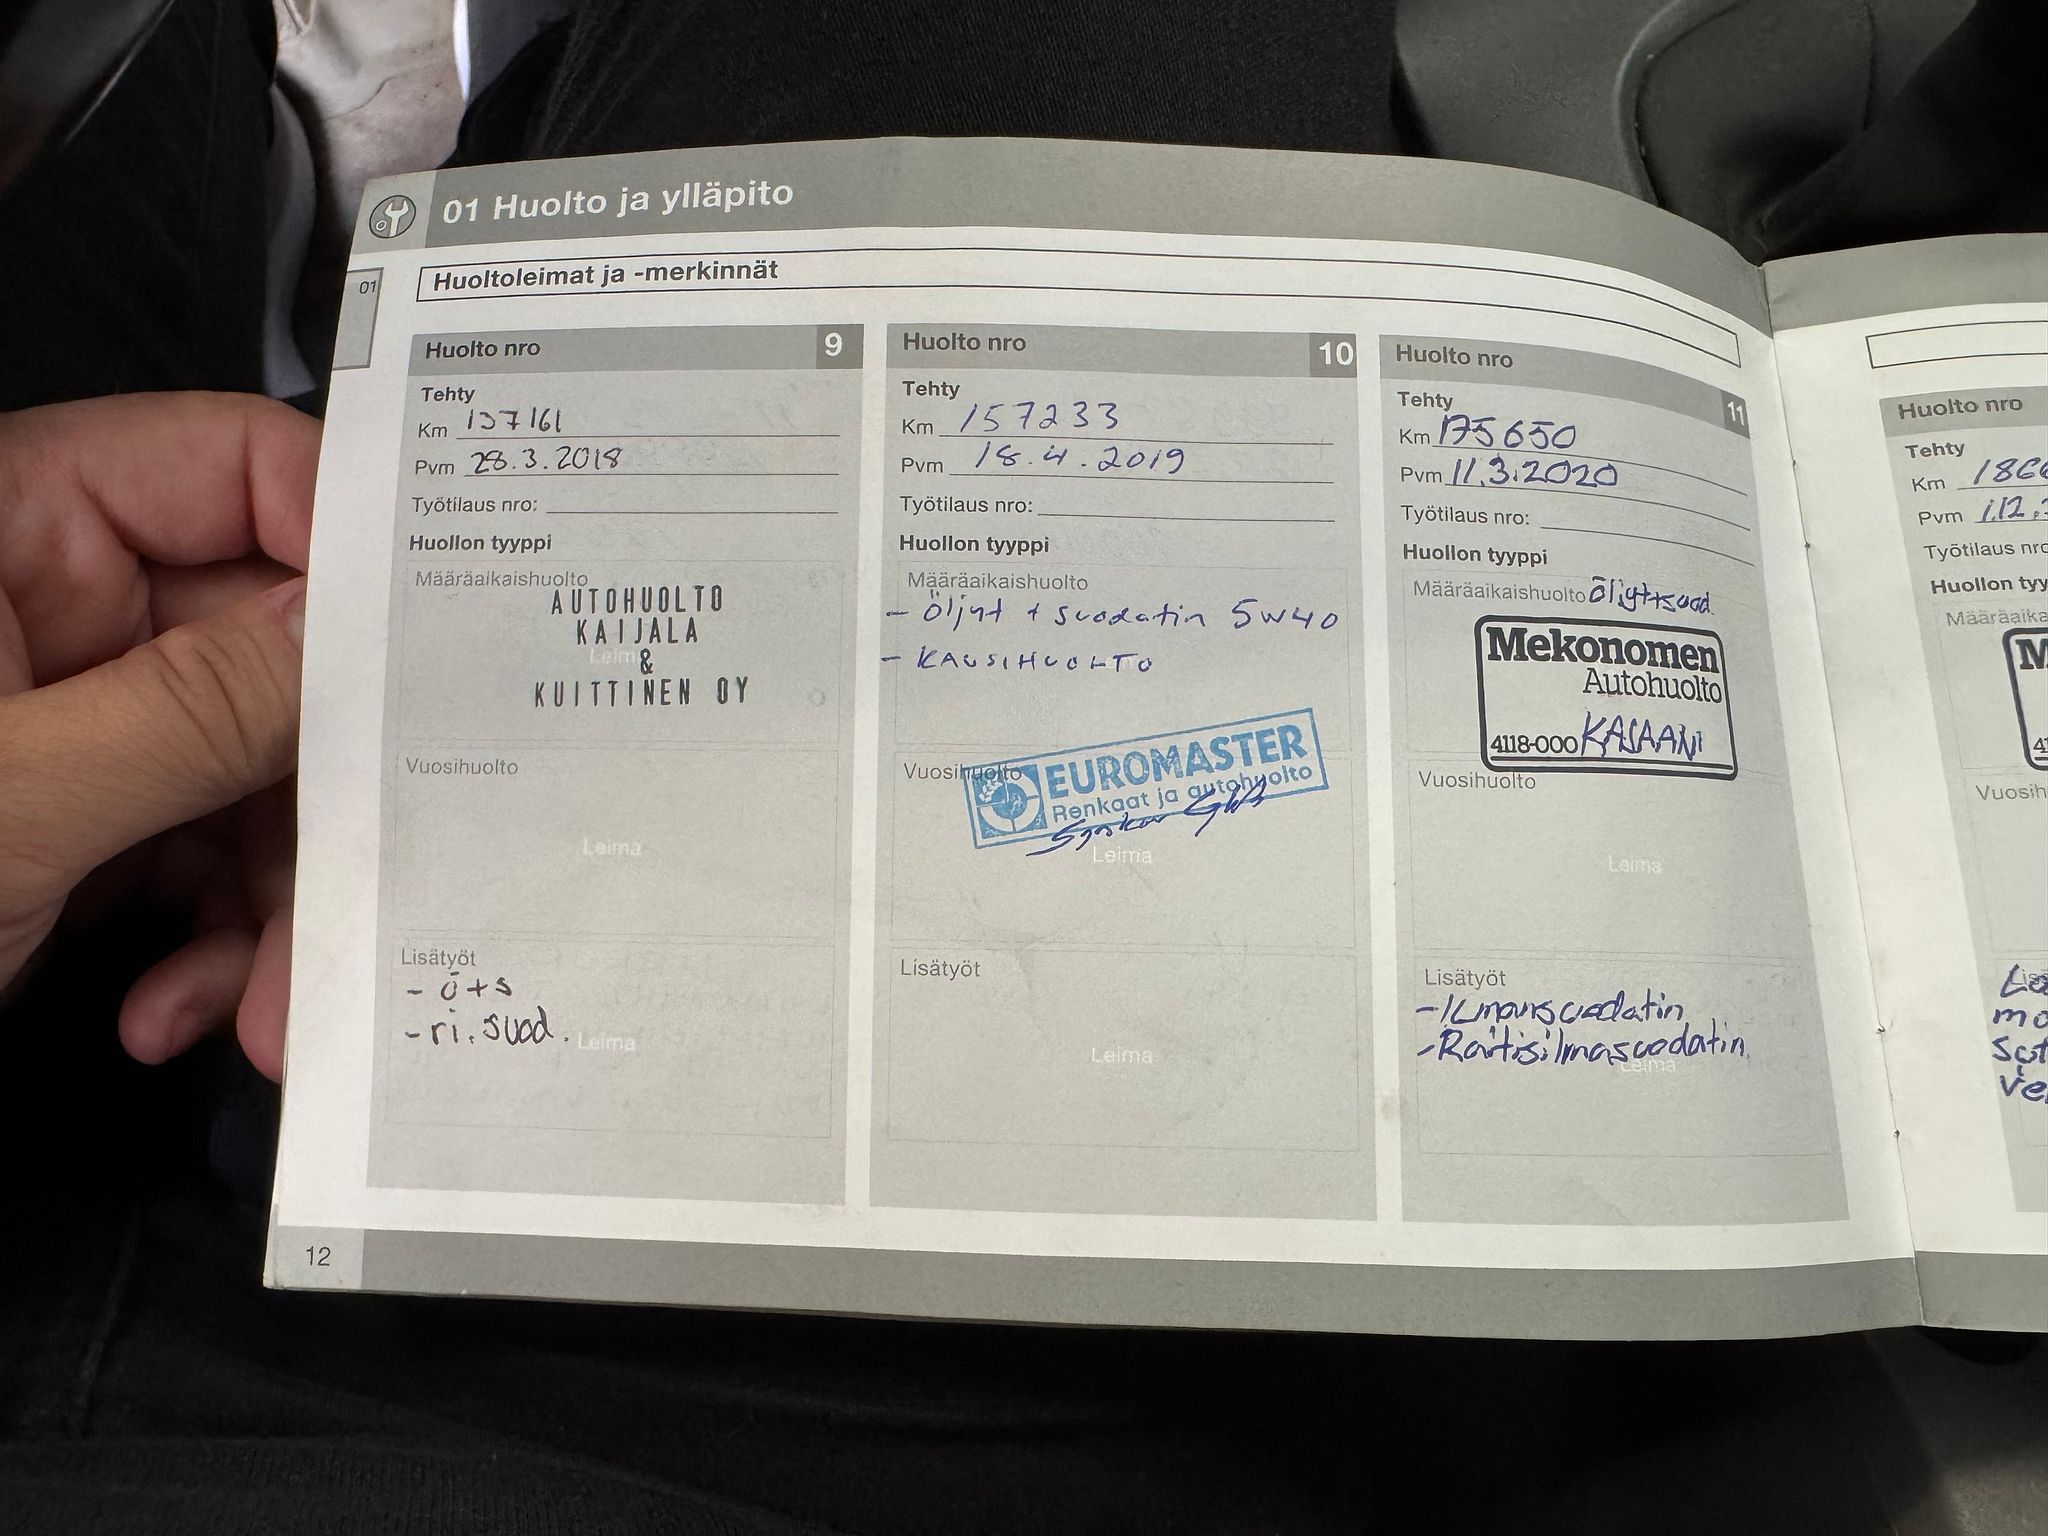 01 Huolto ja ylläpito
01
Huoltoleimat ja -merkinnät
Huolto nro 9
Tehty
Km 137161
Pvm 28.3.2018
Työtilaus nro:
Huollon tyyppi
Määräaikaishuolto
AUTOHUOLTO
KAIJALA
Leima
&
KUITTINEN OY
Vuosihuolto
Leima
Lisätyöt
- ö+s
- ri. suod.
Leima
Huolto nro 10
Tehty
Km 157233
Pvm 18.4.2019
Työtilaus nro:
Huollon tyyppi
Määräaikaishuolto
- Öljyt + suodatin 5W40
- KAUSIHUOLTO
Vuosihuolto
EUROMASTER
Renkaat ja autohuolto
Leima
Lisätyöt
Leima
Huolto nro 11
Tehty
Km 175650
Pvm 11.3.2020
Työtilaus nro:
Huollon tyyppi
Määräaikaishuolto öljyt+suod.
Mekonomen
Autohuolto
4118-000 KAJAANI
Vuosihuolto
Leima
Lisätyöt
- Ilmansuodatin
- Raitisilmasuodatin
Leima
12
Huolto nro
Tehty
Km 186
Pvm 1.12.
Työtilaus nro
Huollon tyy
Määräaika
M
41
Vuosih
Lis
mo
Ve